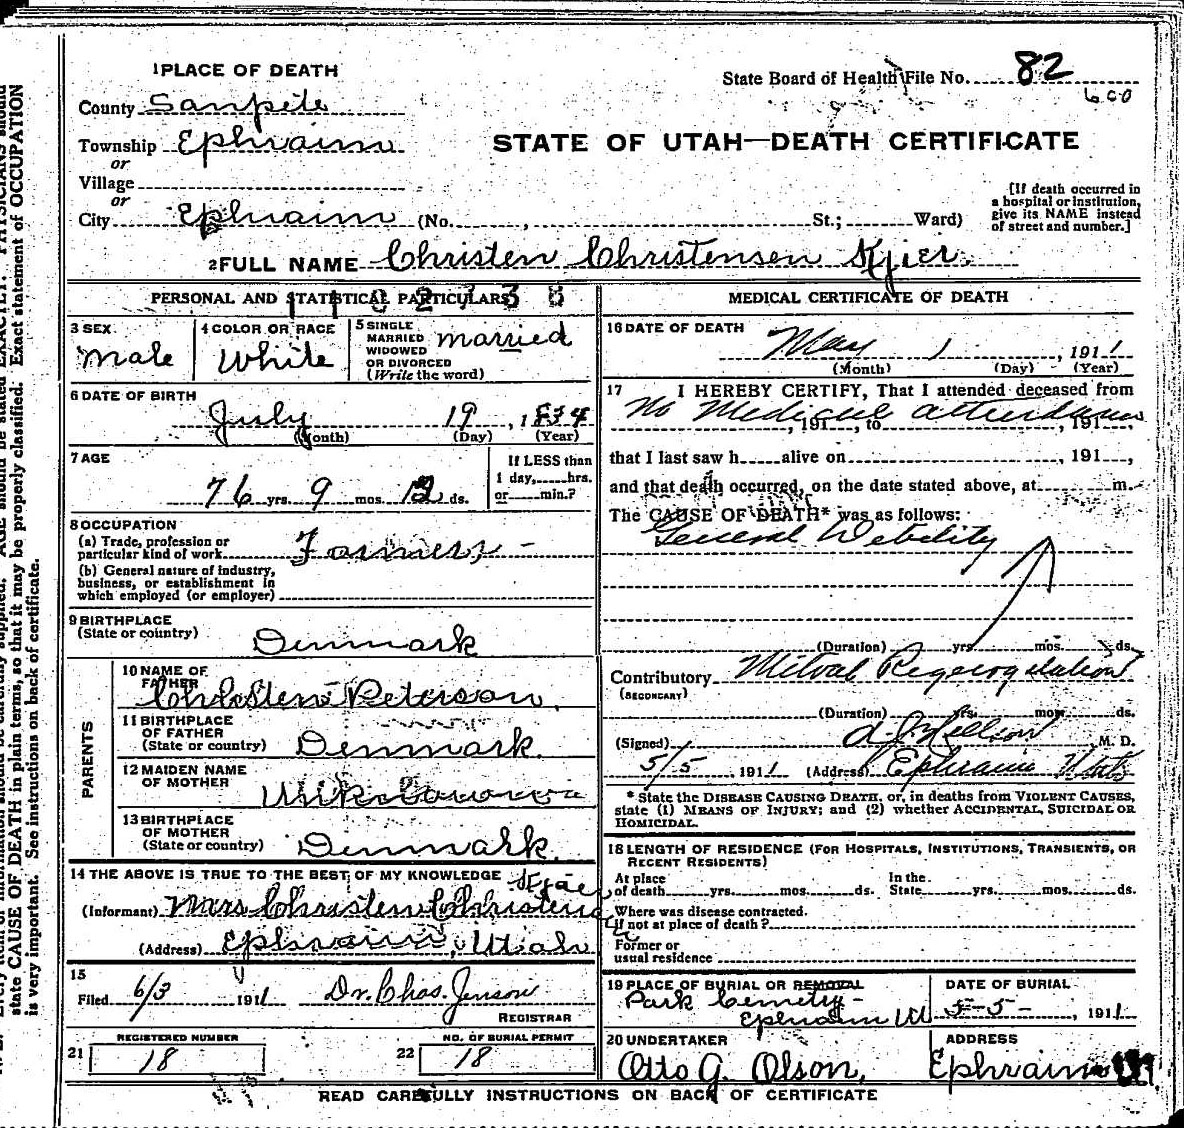 1 PLACE OF DEATH
State Board of Health File No. 82
600
County Sanpete
STATE OF UTAH—DEATH CERTIFICATE
Township Ephraim
or
Village
or
City Ephraim (No. , St.; Ward)
[If death occurred in
a hospital or institution,
give its NAME instead
of street and number.]
2 FULL NAME Christen Christensen Kjier.
PERSONAL AND STATISTICAL PARTICULARS
3 SEX
Male
4 COLOR OR RACE
White
5 SINGLE
MARRIED
WIDOWED
OR DIVORCED
(Write the word)
married
6 DATE OF BIRTH
July 19, 1834
(Month) (Day) (Year)
7 AGE
76 yrs. 9 mos. 12 ds.
If LESS than
1 day, hrs.
or min.?
8 OCCUPATION
(a) Trade, profession or
particular kind of work Farmer -
(b) General nature of industry,
business, or establishment in
which employed (or employer)
9 BIRTHPLACE
(State or country)
Denmark
PARENTS
10 NAME OF
FATHER
Christen Peterson.
11 BIRTHPLACE
OF FATHER
(State or country)
Denmark.
12 MAIDEN NAME
OF MOTHER
13 BIRTHPLACE
OF MOTHER
(State or country)
Denmark.
14 THE ABOVE IS TRUE TO THE BEST OF MY KNOWLEDGE
(Informant) Mrs Christen
(Address) Ephraim, Utah
15
Filed 6/3 1911 Dr. Chas. Jenson
REGISTRAR
REGISTERED NUMBER
21 18
NO. OF BURIAL PERMIT
22 18
MEDICAL CERTIFICATE OF DEATH
16 DATE OF DEATH
May 1, 1911
(Month) (Day) (Year)
17 I HEREBY CERTIFY, That I attended deceased from
No Medical attendance
, 191 , to , 191 ,
that I last saw h alive on , 191 ,
and that death occurred, on the date stated above, at m.
The CAUSE OF DEATH* was as follows:
General Debility
(Duration) yrs. mos. ds.
Contributory Mitral Regergitation
(SECONDARY)
(Duration) yrs. mos. ds.
(Signed) M. D.
5/5, 1911 (Address) Ephraim Utah
* State the DISEASE CAUSING DEATH, or, in deaths from VIOLENT CAUSES,
state (1) MEANS OF INJURY; and (2) whether ACCIDENTAL, SUICIDAL OR
HOMICIDAL.
18 LENGTH OF RESIDENCE (FOR HOSPITALS, INSTITUTIONS, TRANSIENTS, OR
RECENT RESIDENTS)
At place
of death yrs. mos. ds.
In the
State yrs. mos. ds.
Where was disease contracted.
if not at place of death?
Former or
usual residence
19 PLACE OF BURIAL OR REMOVAL
Park Cemetry -
Ephraim Ut
DATE OF BURIAL
5-5-, 1911
20 UNDERTAKER
Otto G. Olson,
ADDRESS
Ephraim
READ CAREFULLY INSTRUCTIONS ON BACK OF CERTIFICATE
state CAUSE OF DEATH in plain terms, so that it may be properly classified. Exact statement of OCCUPATION
is very important. See instructions on back of certificate.